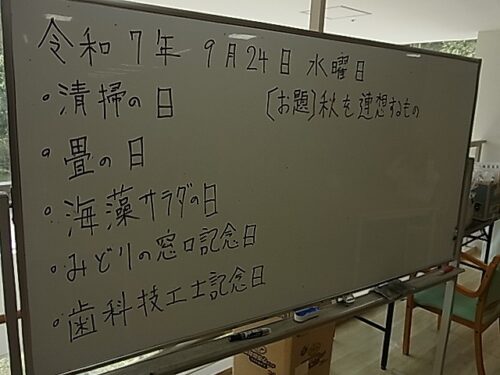 令和7年 9月24日 水曜日
・清掃の日
[お題]秋を連想するもの
・畳の日
・海藻サラダの日
・みどりの窓口記念日
・歯科技工士記念日